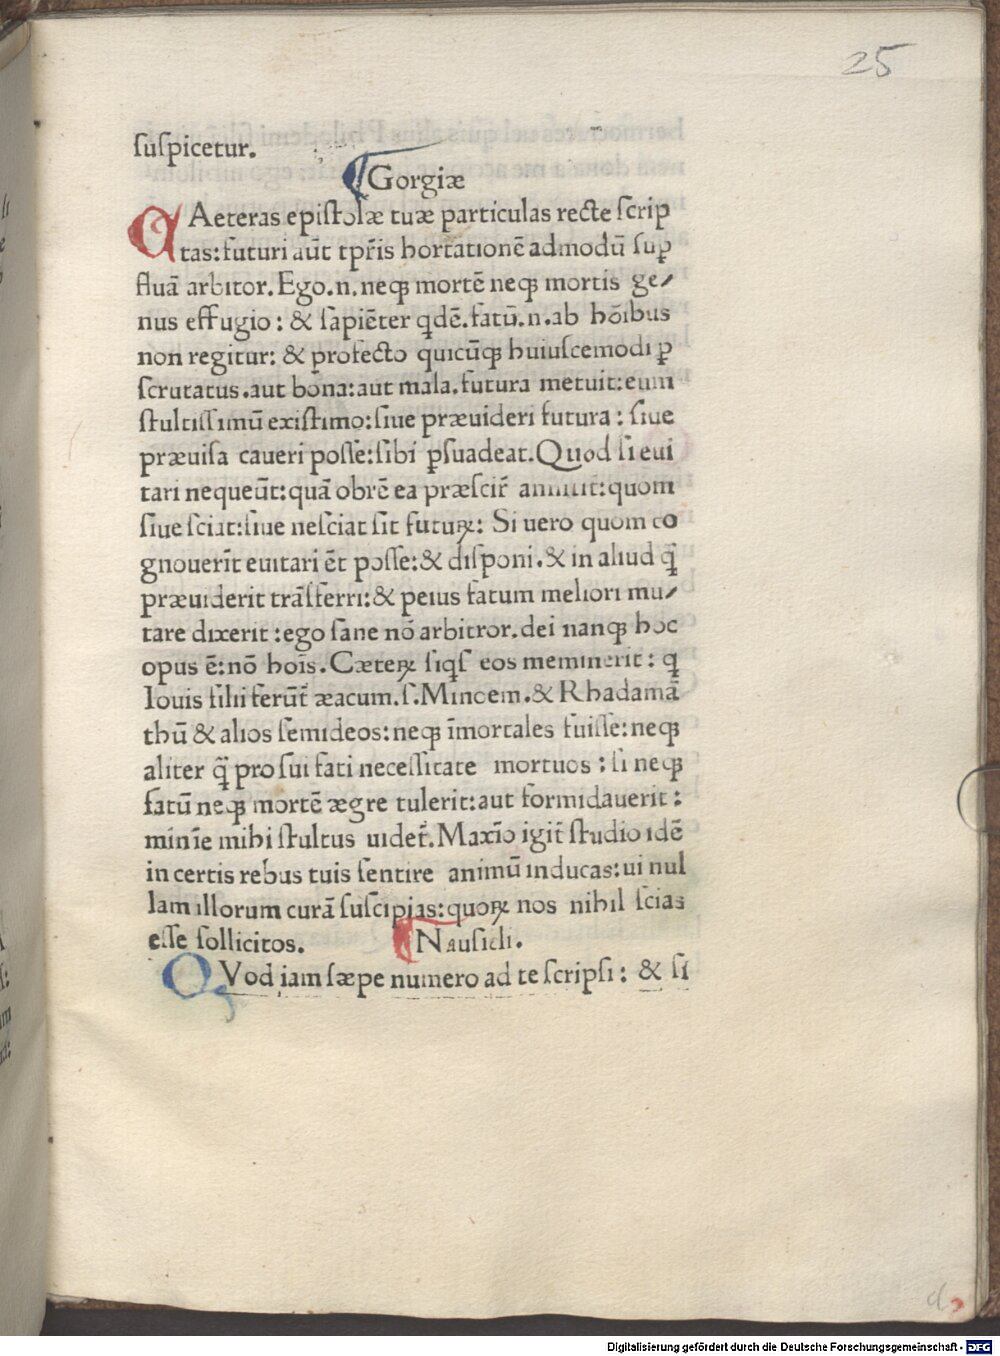 25
suſpicetur.
¶Gorgiæ
CAeteras epiſtolæ tuæ particulas recte ſcrip
tas: futuri aūt tpr̄is hortationē admodū ſuꝑ
fluā arbitor. Ego .n. neqꝫ mortē neqꝫ mortis ge⸗
nus effugio: & ſapiēter qdē. fatū .n. ab hōibus
non regitur: & profecto quicūqꝫ huiuſcemodi ꝑ
ſcrutatus. aut bona: aut mala. futura metuit: eum
ſtultiſſimū exiſtimo: ſiue præuideri futura: ſiue
præuiſa caueri poſſe: ſibi ꝑſuadeat. Quod ſi eui
tari nequeūt: quā obrē ea præſcir̄ annitit: quom
ſiue ſciat: ſiue neſciat ſit futuꝝ: Si uero quom co
gnouerīt euitari ēt poſſe: & diſponi. & in aliud q̄
præuiderit trāſferri: & peius fatum meliori mu⸗
tare dixerit: ego ſane nō arbitror. dei nanqꝫ hoc
opus ē: nō hoīs. Cæteꝝ ſiqſ eos meminerit: q̄
Iouis filii ferūt̄ æacum. ſ. Mincem. & Rhadamā
thū & alios ſemideos: neqꝫ īmortales fuiſſe: neqꝫ
aliter q̄ pro ſui fati neceſſitate mortuos: ſi neqꝫ
fatū neqꝫ mortē ægre tulerit: aut formidauerit:
minīe mihi ſtultus uidet̄. Maxīo igit̄ ſtudio idē
in certis rebus tuis ſentire animū inducas: ui nul
lam illorum curā ſuſcipias: quoꝝ nos nihil ſcias
eſſe ſollicitos. ¶Nauſicli.
QVod iam ſæpe numero ad te ſcripſi: & ſi
d
Digitalisierung gefördert durch die Deutsche Forschungsgemeinschaft - DFG